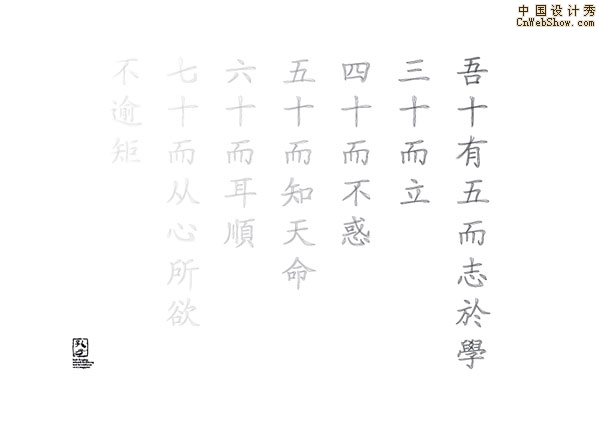 中国设计秀
CnWebShow.com
吾十有五而志於學
三十而立
四十而不惑
五十而知天命
六十而耳順
七十而从心所欲
不逾矩